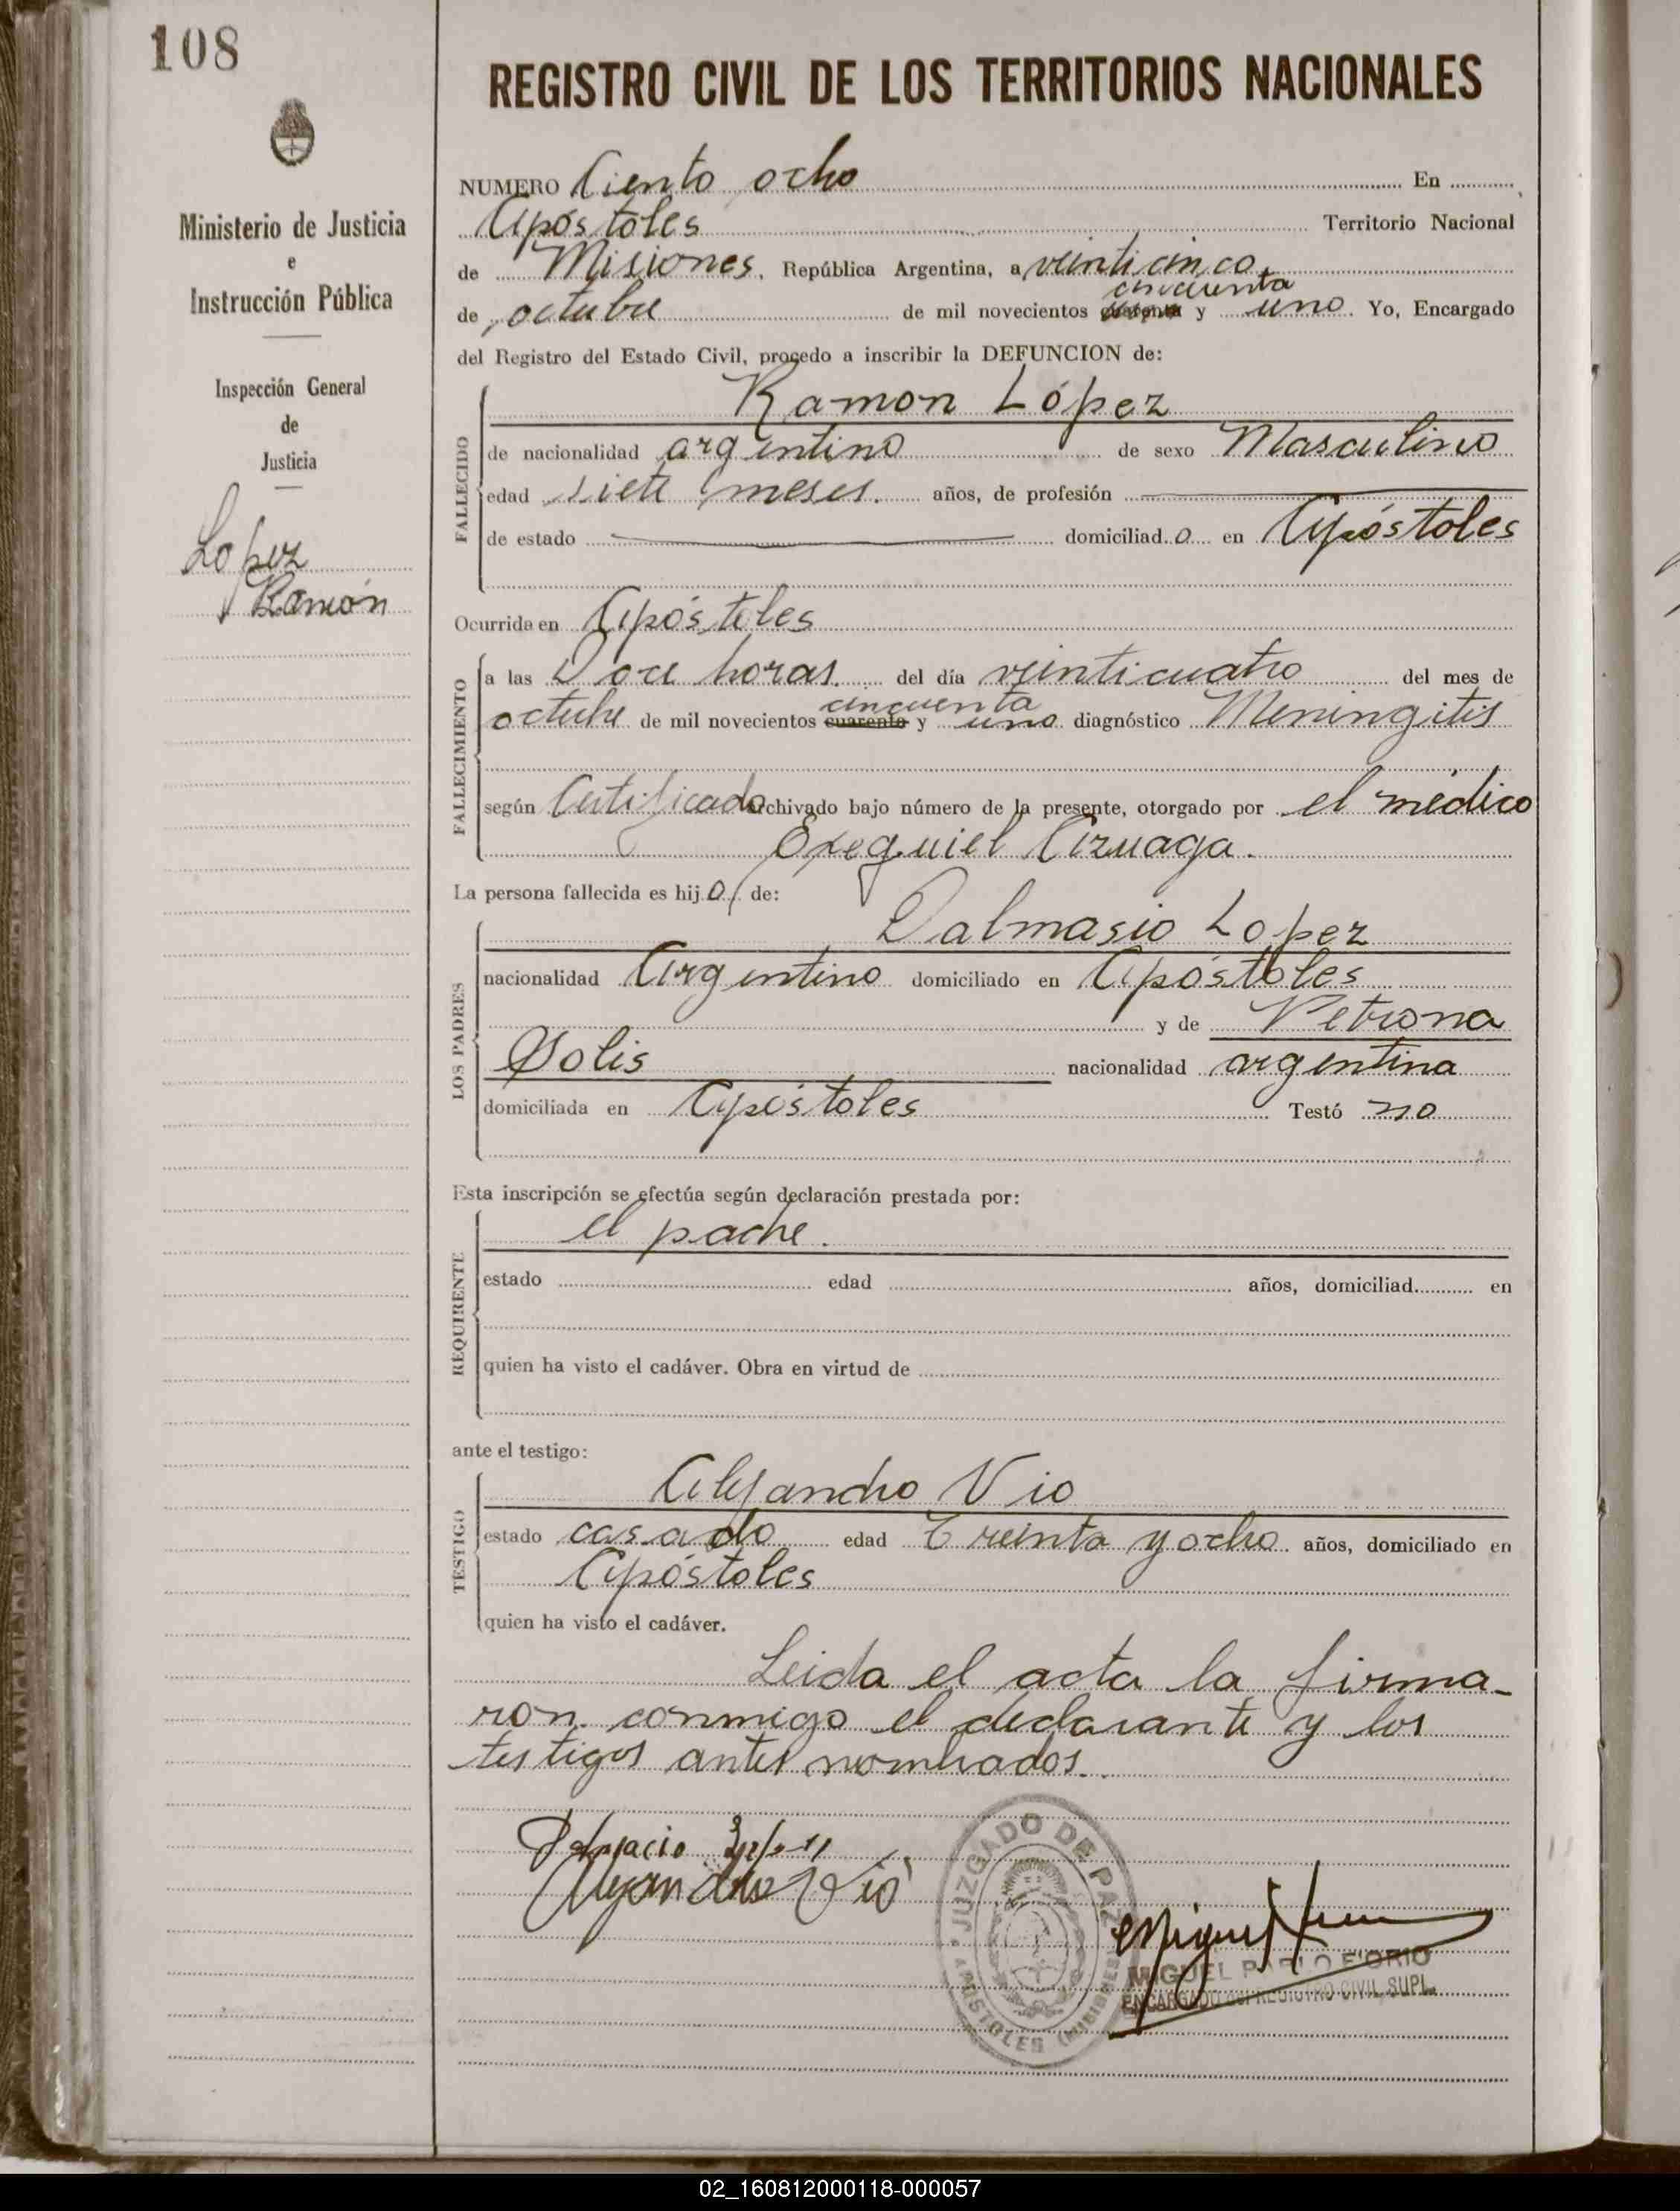 108
Ministerio de Justicia
e
Instrucción Pública
Inspección General
de
Justicia
Lopez
Ramón
REGISTRO CIVIL DE LOS TERRITORIOS NACIONALES
NUMERO Ciento ocho En
Apóstoles Territorio Nacional
de Misiones, República Argentina, a veinticinco
cincuenta
de octubre de mil novecientos cuarenta y uno. Yo, Encargado
del Registro del Estado Civil, procedo a inscribir la DEFUNCION de:
FALLECIDO
Ramon López
de nacionalidad argentino de sexo Masculino
edad siete meses. años, de profesión
de estado domiciliad o en Apóstoles
Ocurrida en Apóstoles
FALLECIMIENTO
a las Doce horas. del día veinticuatro del mes de
cincuenta
octubre de mil novecientos cuarenta y uno diagnóstico Meningitis
según Certificado archivado bajo número de la presente, otorgado por el médico
Exequiel Aizuaga.
La persona fallecida es hij o de:
LOS PADRES
Dalmasio Lopez
nacionalidad Argentino domiciliado en Apóstoles
y de Petrona
Solis nacionalidad argentina
domiciliada en Apóstoles Testó no
Esta inscripción se efectúa según declaración prestada por:
REQUIRENTE
el padre.
estado edad años, domiciliad en
quien ha visto el cadáver. Obra en virtud de
ante el testigo:
TESTIGO
Alejandro Vio
estado casado edad Treinta y ocho años, domiciliado en
Apóstoles
quien ha visto el cadáver.
Leida el acta la firma-
ron conmigo el declarante y los
testigos antes nombrados.
Alejandro Vio
JUZGADO DE PAZ
APOSTOLES (MISIONES)
MIGUEL PABLO FIORIO
ENCARGADO DEL REGISTRO CIVIL SUPL.
02_160812000118-000057